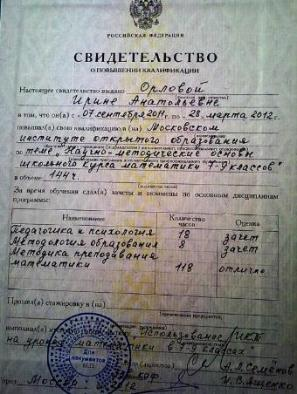 РОССИЙСКАЯ ФЕДЕРАЦИЯ
СВИДЕТЕЛЬСТВО
О ПОВЫШЕНИИ КВАЛИФИКАЦИИ
Настоящее свидетельство выдано Орловой
Ирине Анатольевне
в том, что он(а) с 07 сентября 2011 г. по 28 марта 2012 г.
повышал(а) свою квалификацию в (на) Московском
институте открытого образования
по теме "Научно-методические основы
школьного курса математики 7-9 классов"
в объеме 144 ч.
За время обучения сдал(а) зачеты и экзамены по основным дисциплинам
программы:
Наименование Количество часов Оценка
Педагогика и психология 18 зачет
Методология образования 8 зачет
Методика преподавания
математики 118 отлично
Прошел(а) стажировку в (на)
выполнил(а) Использование ИКТ
на уроках математики в 7-9 классах
Для документов
А.Л. Семёнов
И.В. Ященко
Москва 12